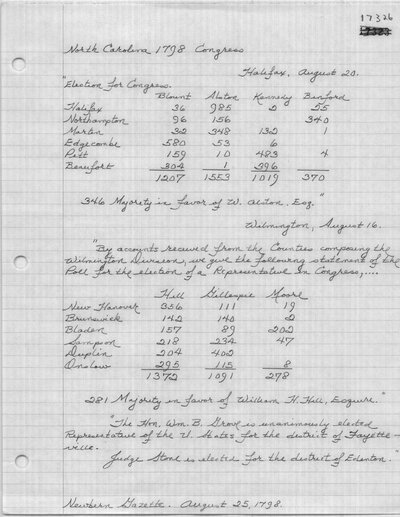 17326
North Carolina 1798 Congress
Halifax, August 20.
"Election for Congress.
Blount Alston Kennedy Binford
Halifax 36 985 2 25
Northampton 96 156 340
Martin 32 348 132 1
Edgecombe 580 53 6
Pitt 159 10 483 4
Beaufort 304 1 396
1207 1553 1019 370
346 Majority in favor of W. Alston, Esq."
Wilmington, August 16.
"By accounts received from the Counties composing the
Wilmington Division, we give the following statement of the
Poll for the election of a Representative in Congress,....
Hill Gillespie Moore
New Hanover 356 111 19
Brunswick 142 140 2
Bladen 157 89 202
Sampson 218 234 47
Duplin 204 402
Onslow 295 115 8
1372 1091 278
281 Majority in favor of William H. Hill, Esquire."
"The Hon. Wm. B. Grove is unanimously elected
Representative of the U. States for the district of Fayette-
ville.
Judge Stone is elected for the district of Edenton."
Newbern Gazette. August 25, 1798.